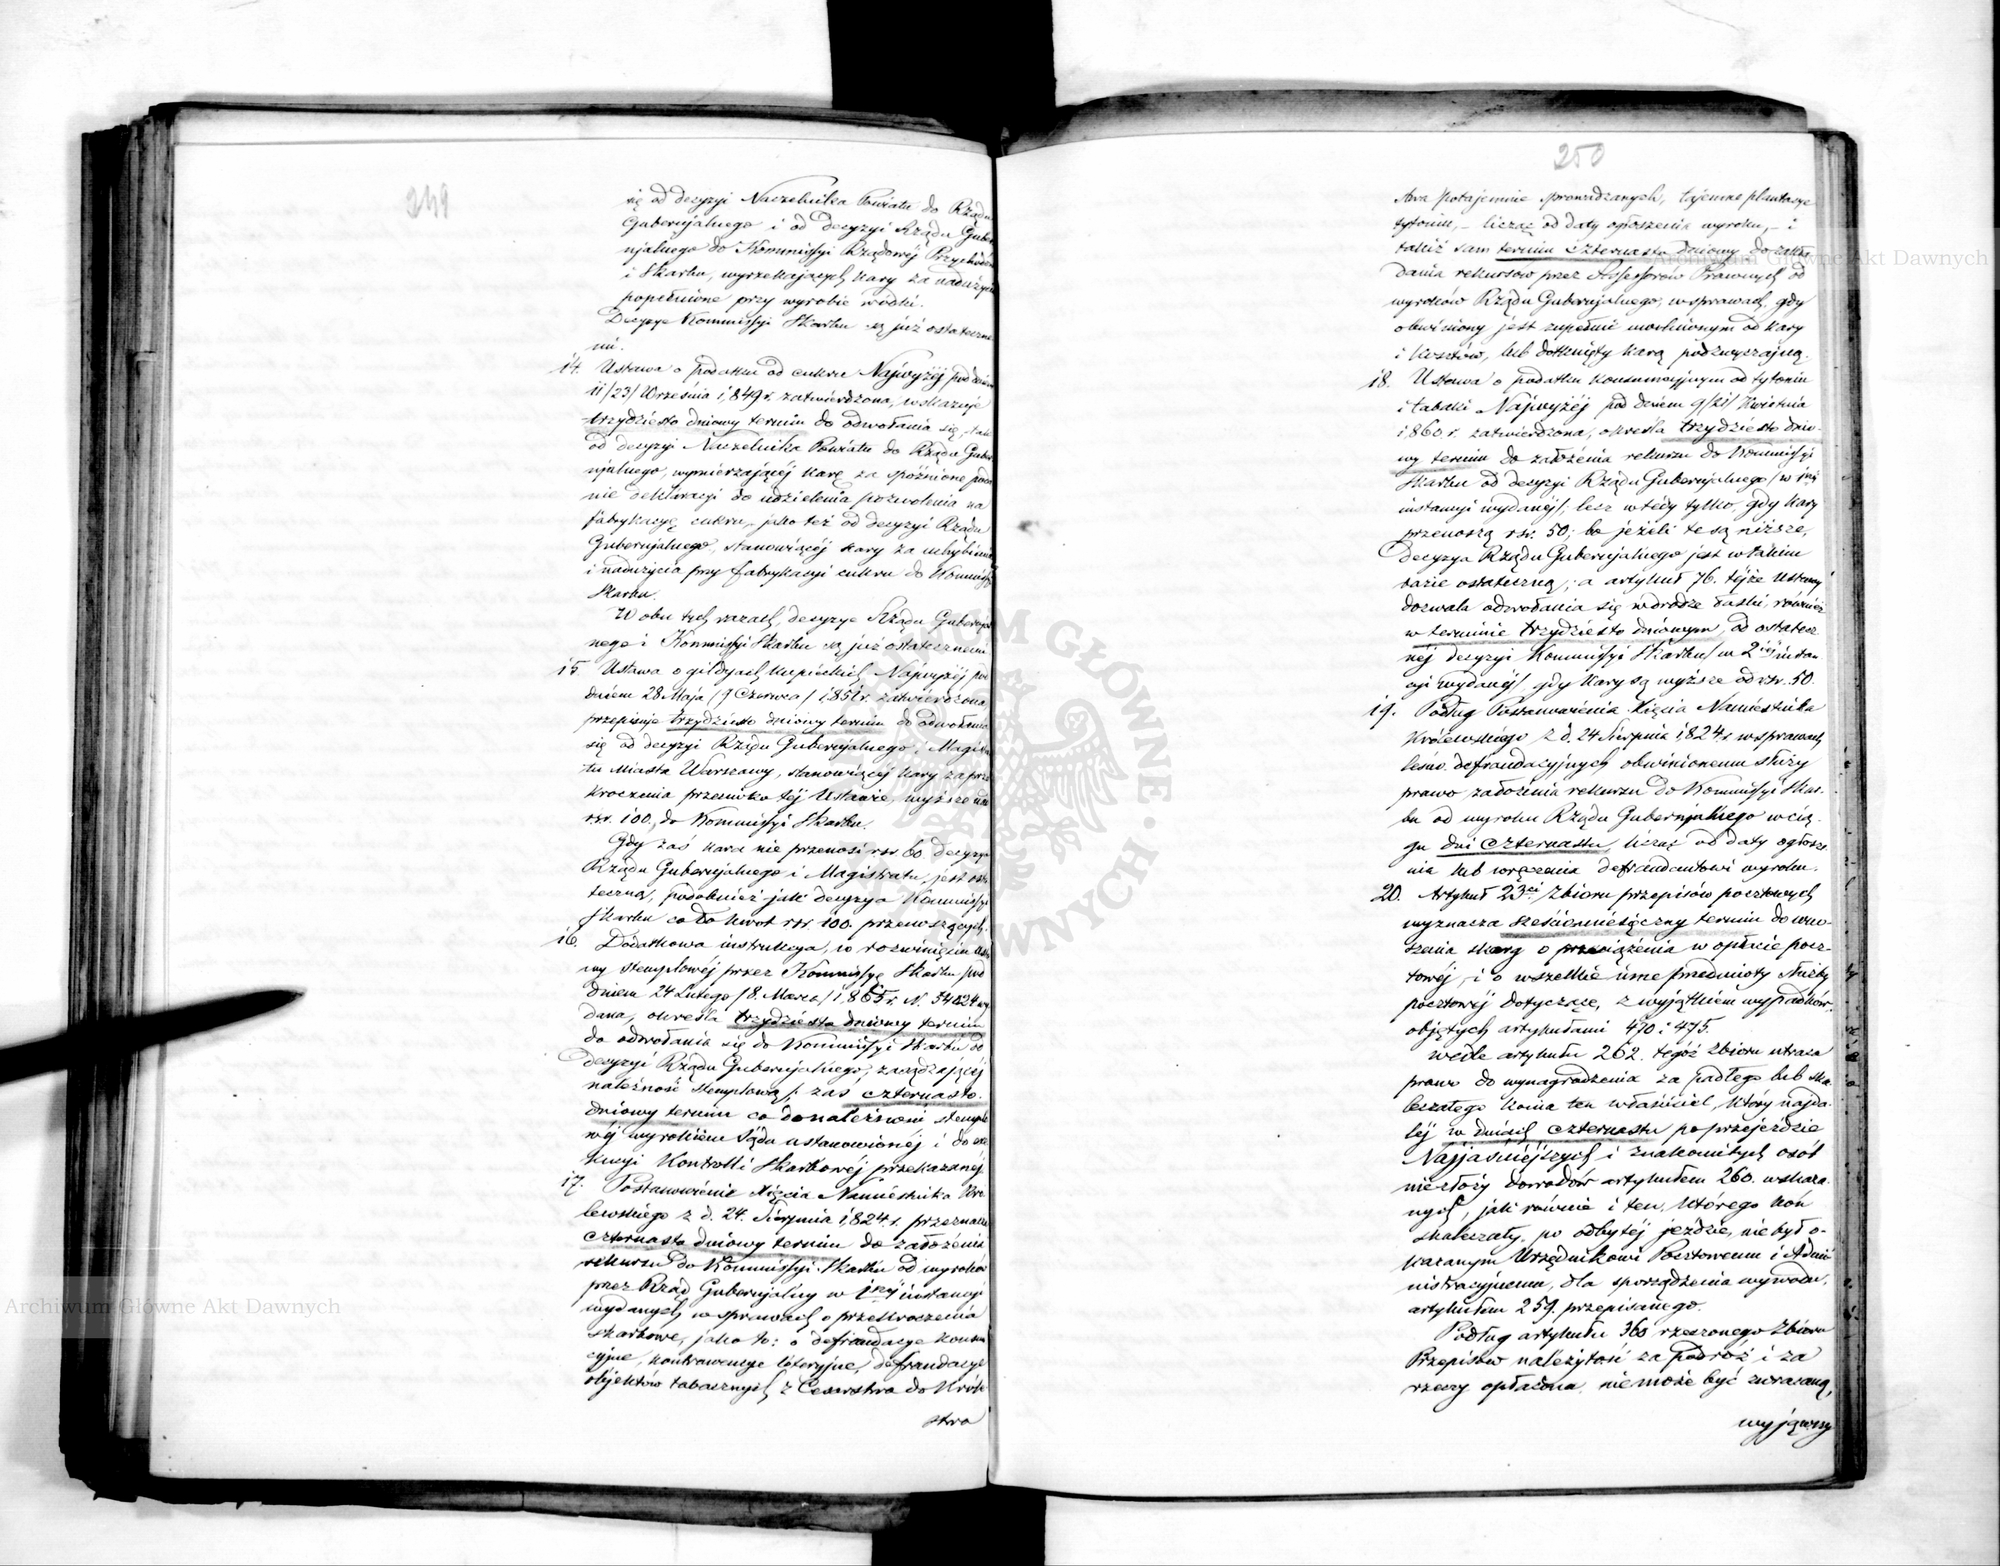 249
się od decyzyi Naczelnika Powiatu do Rządu
Gubernjalnego i od decyzyi Rządu Guber
njalnego do Kommissyi Rządowéj Przychodów
i Skarbu, wyrzekających kary za nadużycia
popełnione przy wyrobie wódki.
Decyzye Kommissyi Skarbu są już ostateczne
mi.
14. Ustawa o podatku od cukru Najwyżéj pod dniem
11/23/ Września 1849 r. zatwierdzona, wskazuje
trzydziesto dniowy termin do odwołania się, tak
od decyzyi Naczelnika Powiatu do Rządu Guber
njalnego, wymierzającéj karę za spóźnione poda
nie deklaracyi do udzielenia pozwolenia na
fabrykacyę cukru, jako też od decyzyi Rządu
Gubernjalnego, stanowiącéj kary za uchybienia
i nadużycia przy fabrykacyi cukru do Kommissyi
Skarbu.
W obu tych razach, decyzye Rządu Gubernjal
nego i Kommissyi Skarbu są już ostatecznemi.
15. Ustawa o gildyach kupieckich Najwyżéj pod
dniem 28 Maja /9 Czerwca/ 1851 r. zatwierdzona
przepisuje trzydziesto dniowy termin do odwołania
się od decyzyi Rządu Gubernjalnego, Magistra
tu Miasta Warszawy, stanowiącéj kary za prze
kroczenia przeciwko téj Ustawie, wyższe nad
rsr. 100, do Kommissyi Skarbu.
Gdy zaś kara nie przenosi rsr. 60 decyzya
Rządu Gubernjalnego i Magistratu, jest osta
teczną, podobnież jak decyzya Kommissyi
Skarbu co do kwot rsr. 100. przenoszących.
16. Dodatkowa instrukcya, w rozwinięciu Usta
wy stemplowéj przez Kommissyę Skarbu pod
dniem 24 Lutego /8. Marca/ 1865 r. N. 54824 wy
dana, określa trzydziesto dniowy termin
do odwołania się do Kommissyi Skarbu od
decyzyi Rządu Gubernjalnego, zasądzającéj
należność stemplową; zaś czternasto
dniowy termin co do należności stemplo
wéj wyrokiem Sądu ustanowionéj i do exe
kucyi Kontrolli Skarbowéj przekazanéj.
17. Postanowienie Xięcia Namiestnika Kró
lewskiego z d. 24. Sierpnia 1824. r. przeznacza
czternasto dniowy termin do założenia
rekursu do Kommissyi Skarbu od wyroków
przez Rząd Gubernjalny w 1széj instancyi
wydanych w sprawach o przekroczenia
skarbowe, jako to: o defraudacye konsum
cyjne, kontrawencye loteryjne, defraudacye
objektów tabacznych z Cesarstwa do Króle
stwa
250
stwa potajemnie sprowadzanych, tajemne plantacye
tytoniu, – licząc od daty ogłoszenia wyroku, – i
takiż sam termin czternasto dniowy do zakła
dania rekursów przez Assessorów Prawnych od
wyroków Rządu Gubernjalnego, w sprawach, gdy
obwiniony jest zupełnie uwolnionym od kary
i kosztów, lub dotknięty karą podzwyczajną.
18. Ustawa o podatku konsumcyjnym od tytoniu
i tabaki Najwyżéj pod dniem 9/21/ Kwietnia
1860 r. zatwierdzona, określa trzydziesto dnio-
wy termin do założenia rekursu do Kommissyi
Skarbu od decyzyi Rządu Gubernjalnego /w 1széj
instancyi wydanéj/, lecz wtedy tylko, gdy kary
przenoszą rsr. 50; bo jeżeli te są niższe,
decyzya Rządu Gubernjalnego jest w takim
razie ostateczną; a artykuł 76. téjże Ustawy
dozwala odwołania się w drodze łaski, również
w terminie trzydziesto dniowym, od ostatecz
néj decyzyi Kommissyi Skarbu /w 2iéj instan
cyi wydanéj/, gdy kary są wyższe od rsr. 50.
19. Podług Postanowienia Xięcia Namiestnika
Królewskiego z d. 24 Sierpnia 1824 r. w sprawach
leśno defraudacyjnych obwinionemu służy
prawo założenia rekursu do Kommissyi Skar-
bu od wyroku Rządu Gubernjalnego w cią-
gu dni czternastu, licząc od daty ogłosze
nia lub wręczenia defraudantowi wyroku.
20. Artykuł 23ci Zbioru przepisów pocztowych
wyznacza sześciomiesięczny termin do wno-
szenia skarg o przeciążenia w opłacie pocz-
towéj, i o wszelkie inne przedmioty służby
pocztowéj dotyczące, z wyjątkiem wypadków,
objętych artykułami 470 i 475.
Wedle artykułu 262. tegóż Zbioru utraca
prawo do wynagrodzenia za padłego lub ska
leczałego konia ten właściciel, który najda-
léj w dniach czternastu po przejeździe
Najjaśniejszych i znakomitych osób
nie złoży dowodów artykułem 260. wskaza
nych, jak równie i ten, którego koń
skaleczały, po odbytéj jeździe, nie był o-
kazanym Urzędnikowi Pocztowemu i Admi
nistracyjnemu, dla sporządzenia wywodu,
artykułem 259. przepisanego.
Podług artykułu 360 rzeczonego Zbioru
Przepisów należytość za podróż i za
rzeczy opłacona, nie może być zwracaną,
wyjąwszy
Archiwum Główne Akt Dawnych
Archiwum Główne Akt Dawnych